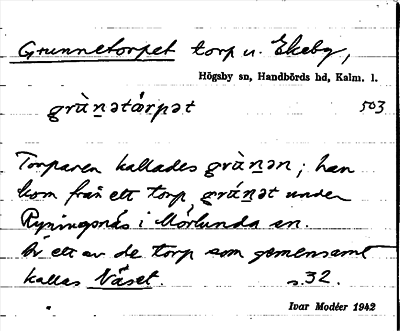 Grunnetorpet torp u. Ekeby,
Högsby sn, Handbörds hd, Kalm. l.
grùn̲ətårpət 503
Torparen kallades grùn̲ən; han
kom från ett torp, grún̲ət under
Ryningsnäs i Mörlunda sn.
Är ett av de torp som gemensamt
kallas Näset. s. 32.
Ivar Modéer 1942